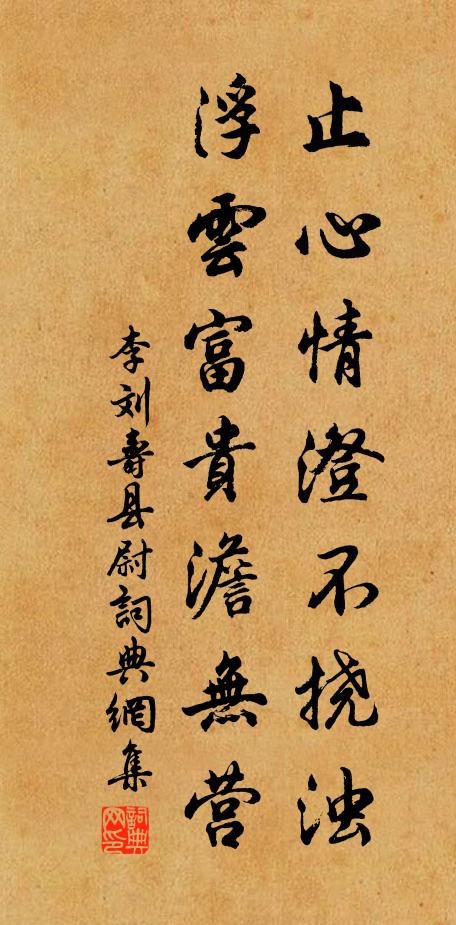 止心情澄不挠浊
浮雲富貴澹無营
李刘壽县尉詞典網集
詞典網印